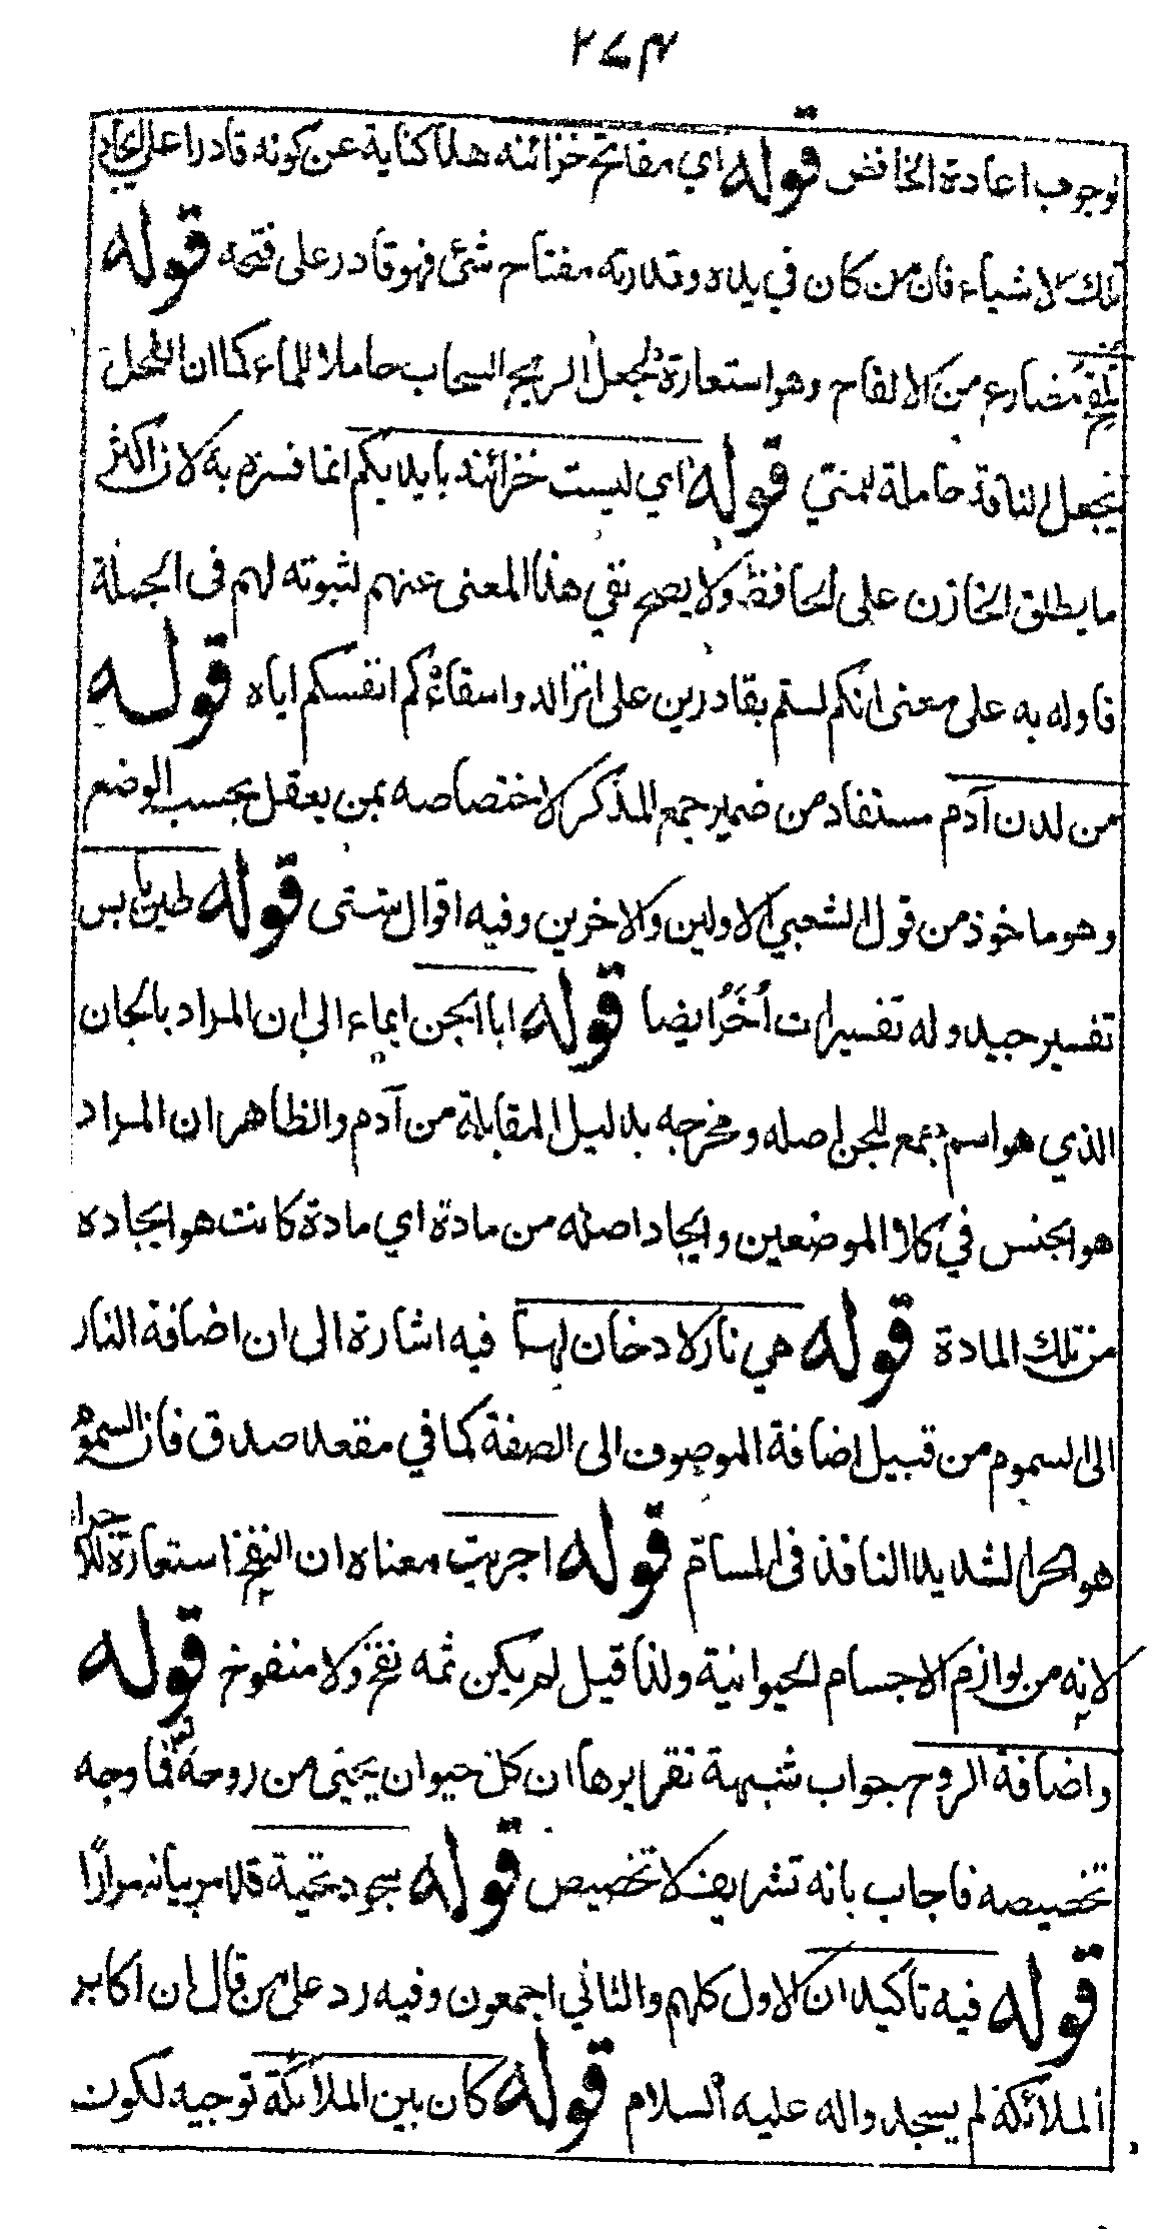 ٢٧٣
لوجوب اعادة الخافض قوله اي مفاتح خزائنه هذا كناية عن كونه قادرا على ايجاد
تلك الاشياء فان من كان في يده وقدرته مفتاح شئ فهو قادر على فتحه قوله
تلقح مضارع من الالقاح وهو استعارة لجعل الريح السحاب حاملا للماء كما ان الفحل
يجعل الناقة حاملة لمني قوله اي ليست خزائنه بايديكم انما فسره به لان اكثر
ما يطلق الخازن على الحافظ ولا يصح نفي هذا المعنى عنهم لثبوته لهم في الجملة
فاوله به على معنى انكم لستم بقادرين على انزاله واسقاءكم انفسكم اياه قوله
من لدن آدم مستفاد من ضمير جمع المذكر لاختصاصه بمن يعقل بحسب الوضع
وهو ماخوذ من قول الشعبي الاولين والاخرين وفيه اقوال شتى قوله طين يابس
تفسير جيد وله تفسيرات أُخَرُ ايضا قوله ابا الجن ايماء الى ان المراد بالجان
الذي هو اسم جمع للجن اصله ومخرجه بدليل المقابلة من آدم والظاهر ان المراد
هو الجنس في كلا الموضعين وايجاد اصله من مادة اي مادة كانت هو ايجاده
من تلك المادة قوله هي نار لا دخان لها فيه اشارة الى ان اضافة النار
الى السموم من قبيل اضافة الموصوف الى الصفة كما في مقعد صدق فان السموم
هو الحر الشديد النافذ في المسام قوله اجريت معناه ان النفخ استعارة للاجراء
لانه من لوازم الاجسام الحيوانية ولذا قيل لم يكن ثمه نفخ ولا منفوخ قوله
واضافة الروح جواب شبهة تقريرها ان كل حيوان يحيى من روحه تع فما وجه
تخصيصه فاجاب بانه تشريف لا تخصيص قوله سجود تحية قد مر بيانه مرارًا
قوله فيه تأكيدان الاول كلهم والثاني اجمعون وفيه رد على من قال ان اكابر
الملائكة لم يسجدوا له عليه السلام قوله كان بين الملائكة توجيه لكون